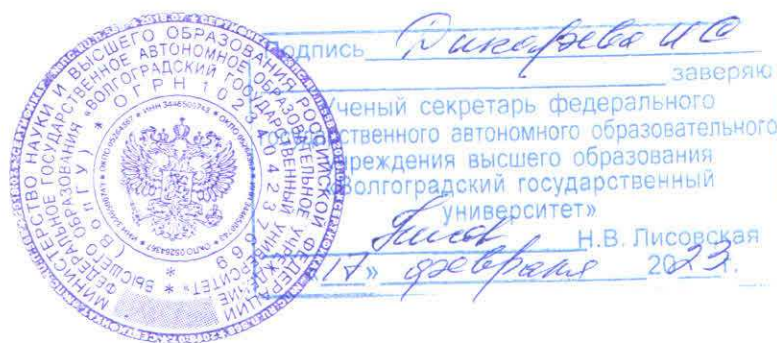 Подпись Дикарева И С
заверяю
Ученый секретарь федерального
государственного автономного образовательного
учреждения высшего образования
«Волгоградский государственный
университет»
Н.В. Лисовская
«17» февраля 2023г.
МИНИСТЕРСТВО НАУКИ И ВЫСШЕГО ОБРАЗОВАНИЯ РОССИЙСКОЙ ФЕДЕРАЦИИ
ФЕДЕРАЛЬНОЕ ГОСУДАРСТВЕННОЕ АВТОНОМНОЕ ОБРАЗОВАТЕЛЬНОЕ УЧРЕЖДЕНИЕ
ВЫСШЕГО ОБРАЗОВАНИЯ «ВОЛГОГРАДСКИЙ ГОСУДАРСТВЕННЫЙ УНИВЕРСИТЕТ»
(ВолГУ) * ОГРН 1023404237669 *